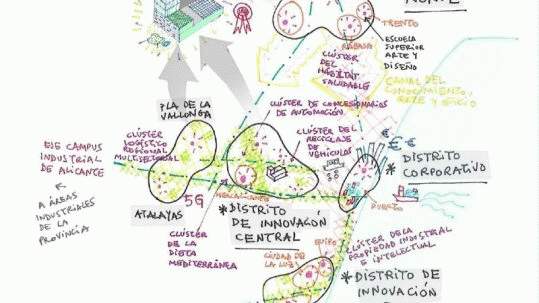 NORTE
TRENTO
RABASA
ESCUELA
SUPERIOR
ARTE Y
DISEÑO
CLÚSTER
DEL
HÁBITAT
SALUDABLE
CANAL DEL
CONOCIMIENTO,
ARTE Y OFICIO
PLA DE LA
VALLONGA
CLÚSTER DE CONCESIONARIOS
DE AUTOMOCIÓN
CLÚSTER DEL
RECICLAJE
DE
VEHÍCULOS
CLÚSTER
LOGÍSTICO
REGIONAL
MULTISECTORIAL
EJE CAMPUS
INDUSTRIAL
DE ALICANTE
A ÁREAS
INDUSTRIALES
DE LA
PROVINCIA
€€€
* DISTRITO
CORPORATIVO
5G
MERCALICANTE
PUERTO
ATALAYAS
* DISTRITO
DE INNOVACIÓN
CENTRAL
CLÚSTER
DE LA
DIETA
MEDITERRÁNEA
CLÚSTER DE LA
PROPIEDAD INDUSTRIAL
E INTELECTUAL
EUIPO
CIUDAD DE
LA LUZ
* DISTRITO DE
INNOVACIÓN